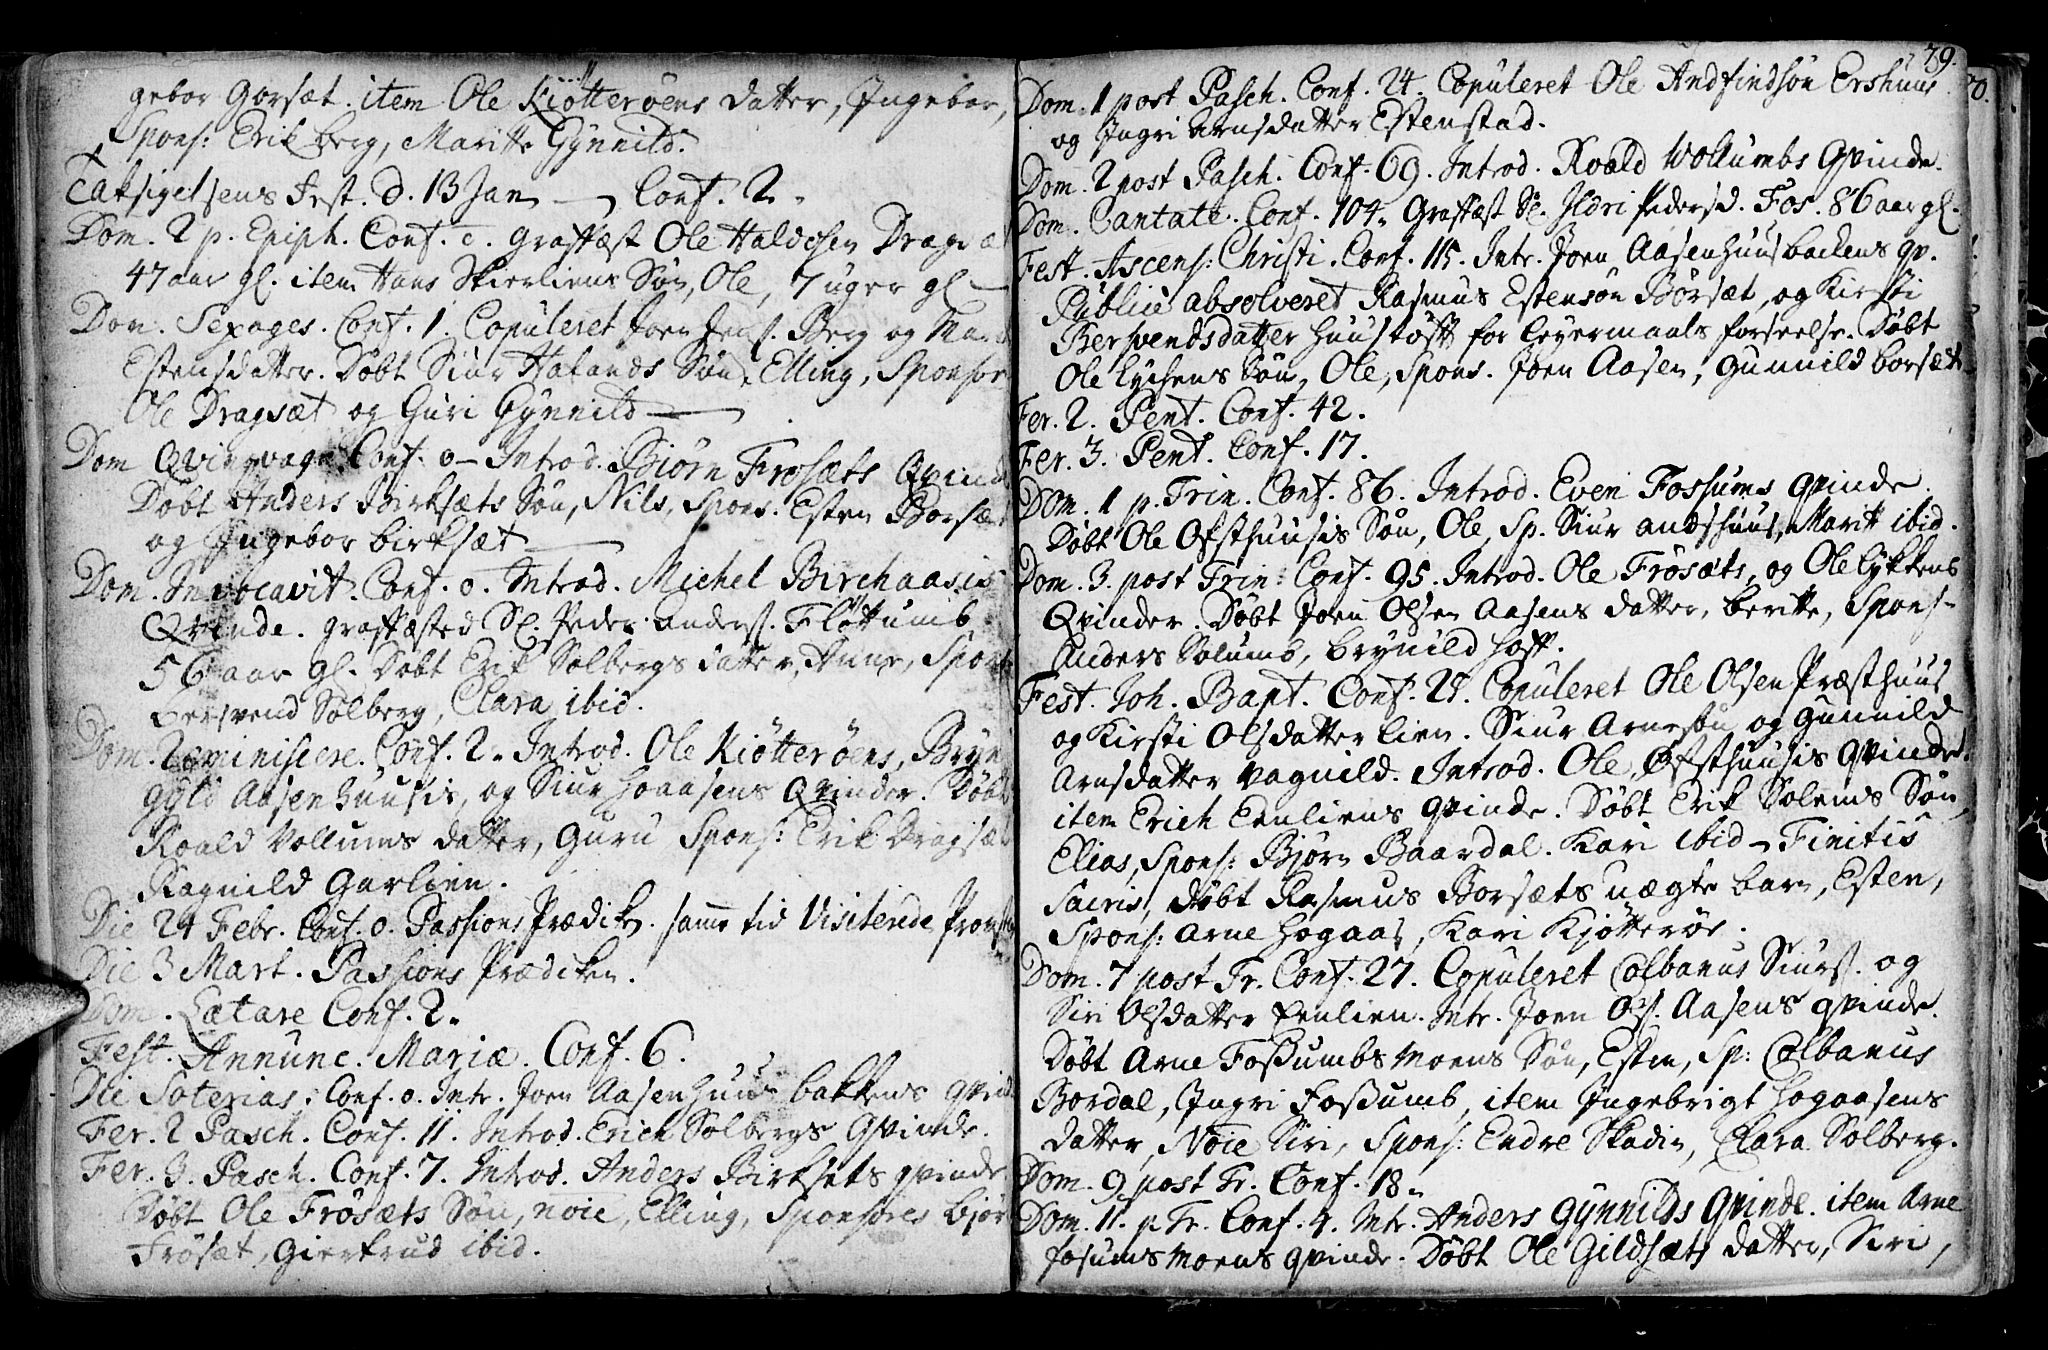 gebor Gorsæt. item Ole Kiötteröens datter, Ingebor,
Spons: Erik berg, Maritte Gynnild.
Taksigelsens Fest. d. 13 Jan — Conf. 2.
Dom. 2 p. Epiph. Conf. 0. Graffæst Ole Haldosen
47 aar gl. item Hans Skierliens Søn, Ole, 7 uger gl —
Dom. Sexages. Conf. 1. Copuleret Joen Jens. Berg og
Estensdatter. Døbt Siur Hafands Søn, Elling, Sponsor
Ole Dragsæt og Guri Gynnild —
Dom Qvinqvag. Conf. 0 — Introd. Biørn Frøsæts Qvinde
Døbt Anders Birksæts Søn, Nils, Spons. Esten Borsæt
og Ingebor birksæt —
Dom. Invocavit. Conf. 0. Introd. Michel Birchaasis
Qvinde. graffæsted Sl. Peder anders. Fløttumb
56 aar gl. Døbt Erik Solbergs datter, Anne, Spons
bersvend Solberg, Clara ibid.
Dom. Reminiscere. Conf. 2. Introd. Ole Kiötteröens, Bryn
gyld Aasenhuusis, og Siur hoaasens Qvinder. Døbt
Roald Vollums datter, Guru Spons: Erik Dragsæt
Ragnild Garlien.
Die 24 Febr. Conf. 0. Passions Prædik. samme tid Visiterede Provsten
Die 3 Mart. Passions Prædiken.
Dom. Lætare Conf. 2.
Fest. Annunc. Mariæ. Conf. 6.
Die Soterias. Conf. 0. Intr. Joen Aasenhuus bakkens qvinde
Fer. 2 Pasch. Conf. 11. Introd. Erich Solbergs Qvinde.
Fer. 3. Pasch. Conf. 7. Introd. Anders Birksets qvinde
Døbt Ole Frøsæts Søn, noie, Elling, Sponsores biør
Frøsæt, Giertrud ibid.
79.
Dom. 1 post Pasch. Conf. 24. Copuleret Ole Andfindsøn Ershuus
og Ingri Arnsdatter Estenstad.
Dom. 2 post Pasch. Conf. 69. Introd. Roald Wollumbs Qvinde.
Dom. Cantate. Conf. 104. Graffæst Sl. Ildri Pedersd. Fos. 86 aar gl.
Fest. Ascens: Christi. Conf. 115. Intr. Joen Aasenhuusbackens qv.
Publice absolveret Rasmus Estensøn Børsæt, og Kirsti
Bersvendsdatter Huustøft for Leyermaals forseelse. Døbt
Ole Lychens Søn, Ole, Spons. Joen Aasen, Gunnild borsæt
Fer. 2. Pent. Conf. 42.
Fer. 3. Pent. Conf. 17.
Dom. 1 p. Trin. Conf. 86. Introd. Even Fossums qvinde.
Døbt Ole Ofsthuusis Søn, Ole, Sp. Siur andshuus, Marit ibid.
Dom. 3. post Trin: Conf. 95. Introd. Ole Frøsæts, og Ole lykkens
Qvinder. Døbt Joen Olsen Aasens datter, beritte, Spons—
Anders Solumb, brynild hoff.
Fest. Joh. Bapt. Conf. 28. Copuleret Ole Olsen Præsthuus
og Kirsti Olsdatter lien. Siur Arnesøn og Gunnild
Arnsdatter Vagnild. Introd. Ole Øfsthuusis qvinde.
item Erich Eenliens qvinde. Døbt Erik Solems Søn,
Elias, Spons: Bjørn Baardal. Kari ibid — Finitis
Sacris, døbt Rasmus Borsæts uægte barn, Esten,
Spons: Arne hogaas, Kari Kjøtterøe.
Dom. 7 post Tr. Conf. 27. Copuleret Colbanus Siurs. og
Siri Olsdatter Eenlien. Intr. Joen Ols. Aasens qvinde.
Døbt Arne Foßumbs moens Søn, Esten, Sp: Colbanus
Bordal, Ingri Foßumb, item Ingebrigt hogaasens
datter, Noie Siri, Spons: Endre Skadin, Clara Solberg.
Dom. 9 post Tr. Conf. 18.
Dom. 11. p Tr. Conf. 4. Intr. Anders Gynnilds Qvinde. item Arne
fosumsmoens qvinde. Døbt Ole Gildsæts datter, Siri,